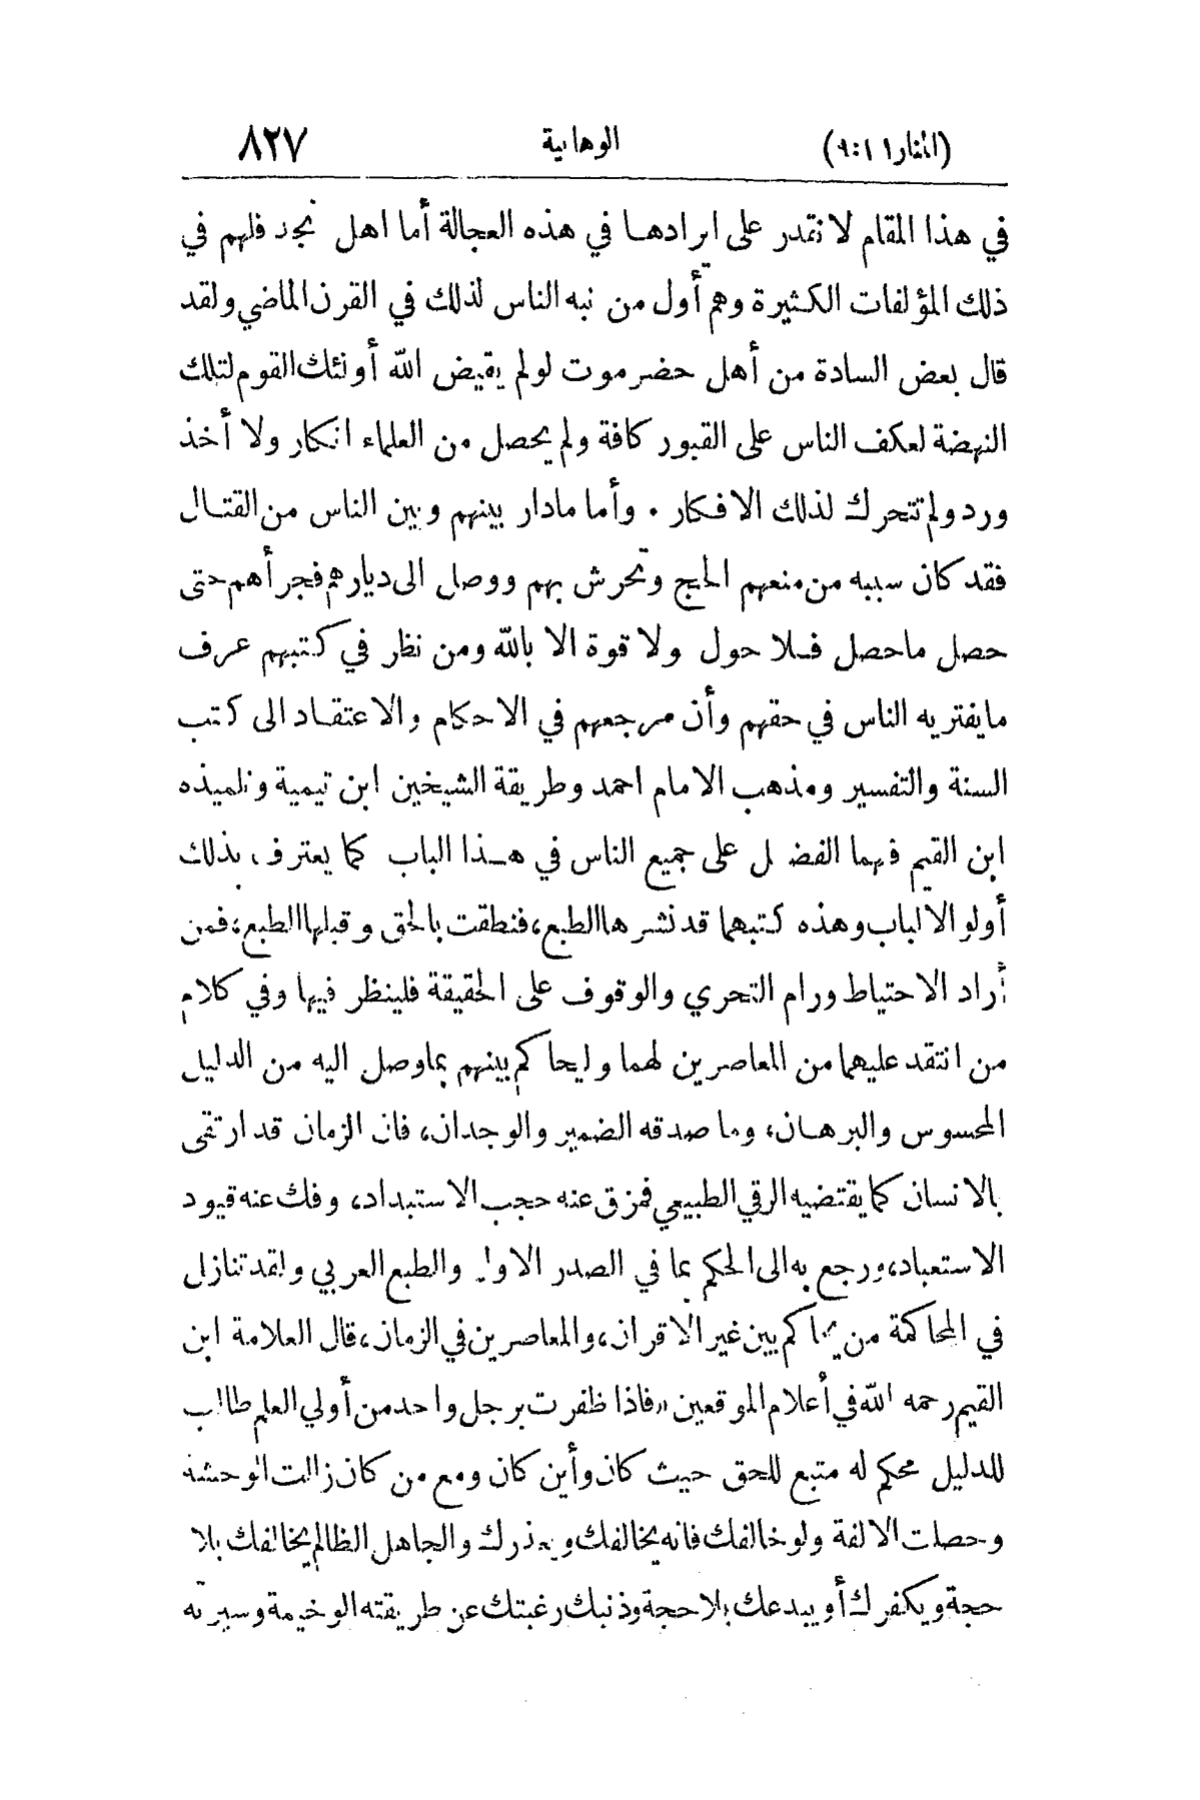 (المنار ١١:٩) الوهابية ٨٢٧
في هذا المقام لا نقدر على ايرادها في هذه العجالة أما اهل نجد فلهم في
ذلك المؤلفات الكثيرة وهم أول من نبه الناس لذلك في القرن الماضي ولقد
قال بعض السادة من أهل حضرموت لولم يقيض الله أولئك القوم لتلك
النهضة لعكف الناس على القبور كافة ولم يحصل من العلماء انكار ولا أخذ
ورد ولم تتحرك لذلك الافكار . وأما مادار بينهم وبين الناس من القتال
فقد كان سببه من منعهم الحج وتحرش بهم ووصل الى ديارهم فجرأهم حتى
حصل ماحصل فلا حول ولا قوة الا بالله ومن نظر في كتبهم عرف
مايفتريه الناس في حقهم وأن مرجعهم في الاحكام والاعتقاد الى كتب
السنة والتفسير ومذهب الامام احمد وطريقة الشيخين ابن تيمية وتلميذه
ابن القيم فهما الفضل على جميع الناس في هذا الباب كما يعترف بذلك
أولو الالباب وهذه كتبهما قد نشرها الطبع، فنطقت بالحق وقبلها الطبع، فمن
أراد الاحتياط ورام التحري والوقوف على الحقيقة فلينظر فيها وفي كلام
من انتقد عليهما من المعاصرين لهما وليحاكم بينهم بماوصل اليه من الدليل
المحسوس والبرهان، وما صدقه الضمير والوجدان، فان الزمان قد ارتقى
بالانسان كما يقتضيه الرقي الطبيعي فمزق عنه حجب الاستبداد، وفك عنه قيود
الاستعباد، ورجع به الى الحكم بما في الصدر الاول والطبع العربي ولقد تنازل
في المحاكمة من يحاكم بين غير الاقران، والمعاصرين في الزمان، قال العلامة ابن
القيم رحمه الله في أعلام الموقعين «فاذا ظفرت برجل واحد من أولي العلم طالب
للدليل محكم له متبع للحق حيث كان وأين كان ومع من كان زالت الوحشة
وحصلت الالفة ولو خالفك فانه يخالفك ويعذرك والجاهل الظالم يخالفك بلا
حجة ويكفرك أو يبدعك بلا حجة وذنبك رغبتك عن طريقته الوخيمة وسيرته